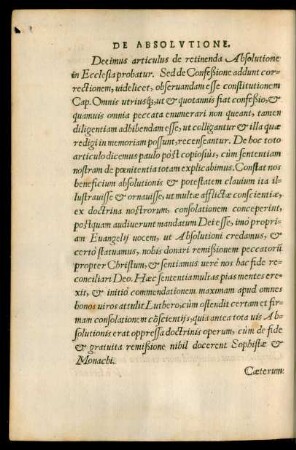 DE ABSOLVTIONE.
Decimus articulus de retinenda Absolutione
in Ecclesia probatur. Sed de Confeßione addunt cor-
rectionem, uidelicet, obseruandam esse constitutionem
Cap. Omnis utriusq;, ut & quotannis fiat confeßio, &
quamuis omnia peccata enumerari non queant, tamen
diligentiam adhibendam esse, ut colligantur & illa quæ
redigi in memoriam possunt, recenseantur. De hoc toto
articulo dicemus paulo pòst copiosius, cùm sententiam
nostram de pœnitentia totam explicabimus. Constat nos
beneficium absolutionis & potestatem clauium ita il
lustrauisse & ornauisse, ut multæ afflictæ conscientiæ,
ex doctrina nostrorum, consolationem conceperint,
postquam audiuerunt mandatum Dei esse, imò propri-
am Euangelij uocem, ut Absolutioni credamus, &
certò statuamus, nobis donari remißionem peccatorũ
propter Christum, & sentiamus uerè nos hac fide re-
conciliari Deo. Hæc sententia multas pias mentes ere-
xit, & initiò commendationem maximam apud omnes
bonos uiros attulit Luthero, cùm ostendit certam et fir-
mam consolationem cõscientijs, quia antea tota uis Ab
solutionis erat oppressa doctrinis operum, cùm de fide
& gratuita remißione nihil docerent Sophistæ &
Monachi.
Cæterum